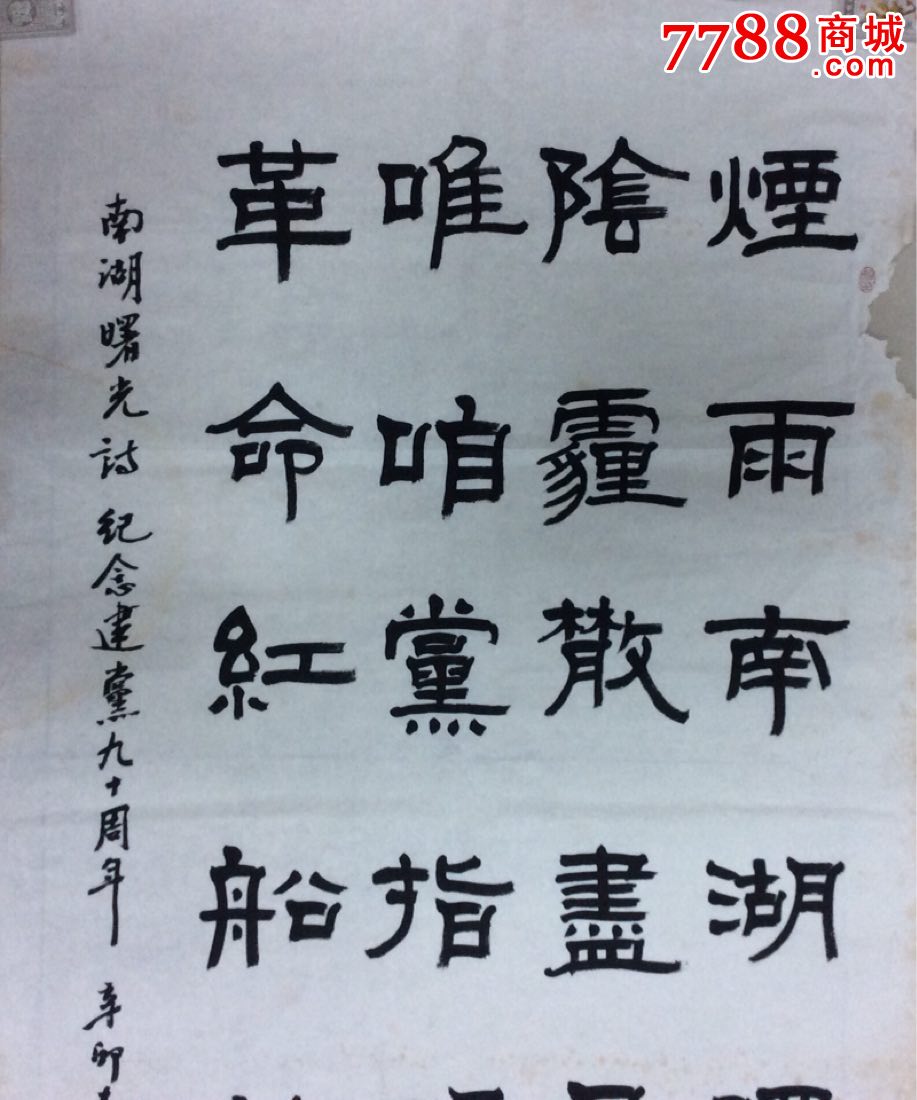 7788商城
.com
煙雨南湖
陰霾散盡
唯咱黨指
革命紅船
南湖曙光詩 紀念建黨九十周年 辛卯